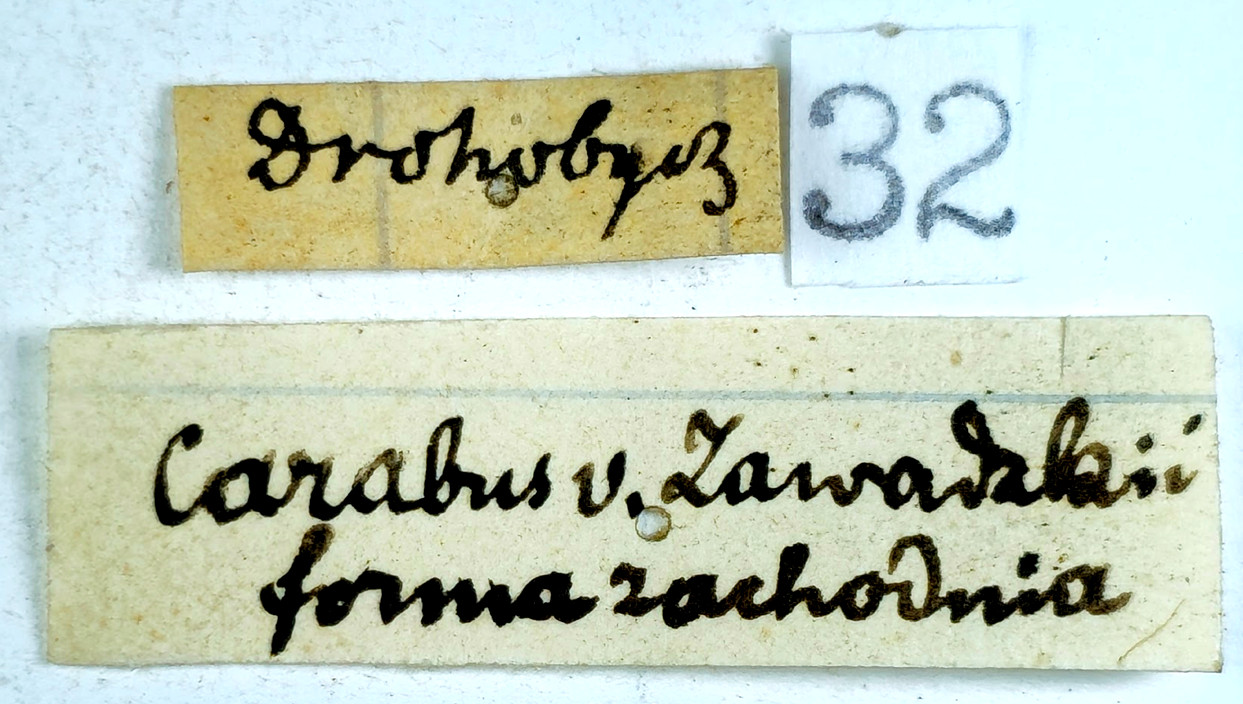 Drohobycz
32
Carabus v. Zawadzkii
forma zachodnia